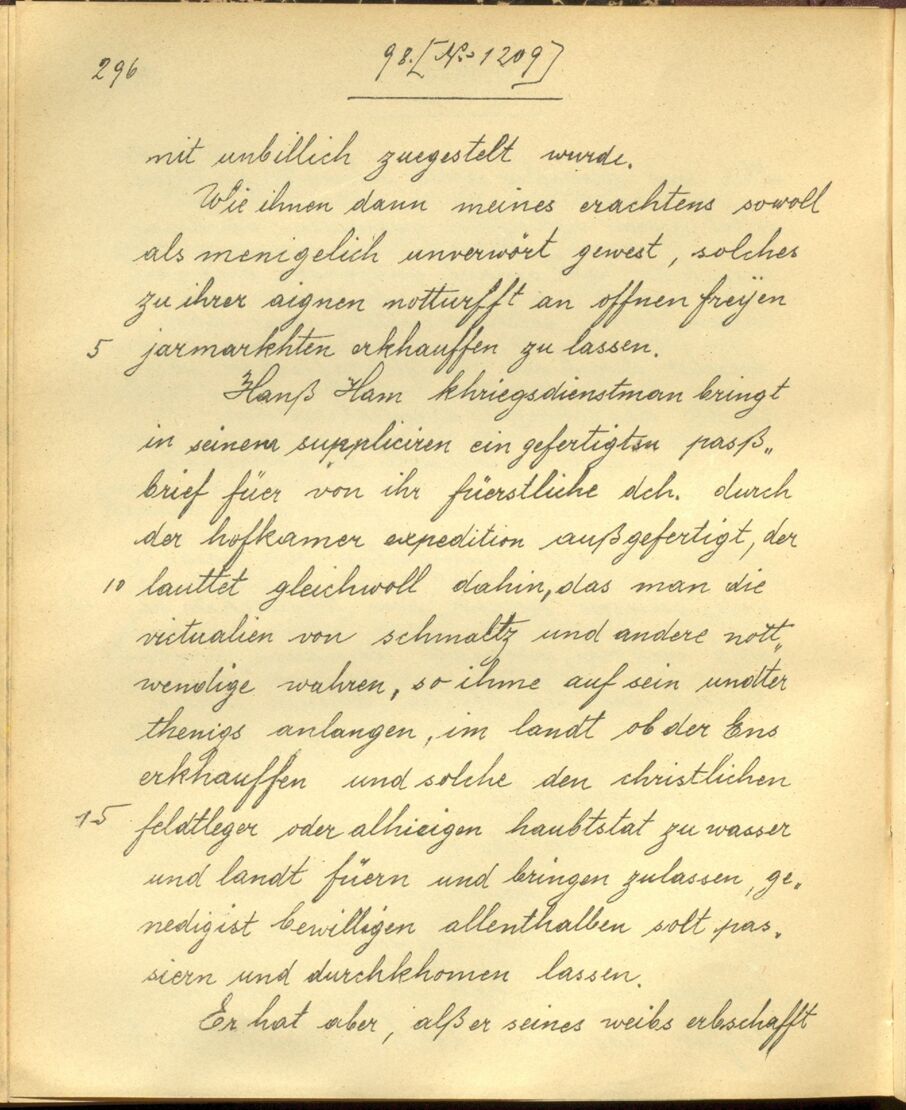 296
98. [No 1209]
mit unbillich zuegestelt wurde.
Wie ihnen dann meines erachtens sowoll
als menigelich unverwört gewest, solches
zu ihrer aignen notturfft an offnen freÿen
5 jarmarkhten erkhauffen zu lassen.
Hanß Ham khriegsdienstman bringt
in seinem suppliciren ein gefertigten paß„
brief füer von ihr füerstliche dch. durch
der hofkamer expedition außgefertigt, der
10 lauttet gleichwoll dahin, das man die
victualien von schmaltz und andere nott„
wendige wahren, so ihme auf sein undter
thenigs anlangen, im landt ob der Ens
erkhauffen und solche den christlichen
15 feldtleger oder alhieigen haubtstat zu wasser
und landt füern und bringen zulassen, ge„
nedigist bewilligen allenthalben solt pas„
siern und durchkhomen lassen.
Er hat aber, alß er seines weibs erbschafft